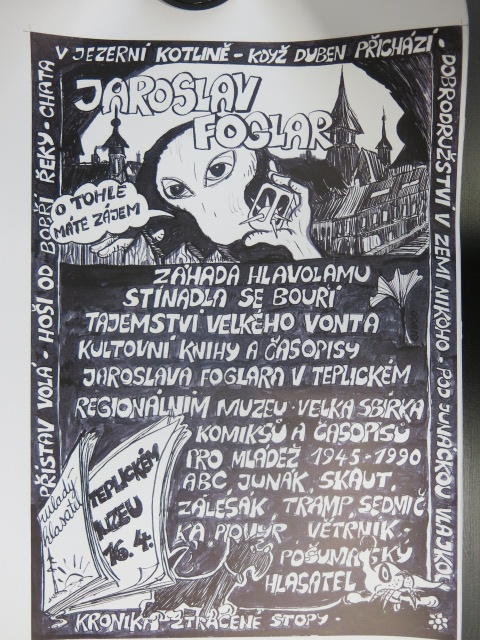 V JEZERNÍ KOTLINĚ - KDYŽ DUBEN PŘICHÁZÍ -
DOBRODRUŽSTVÍ V ZEMI NIKOHO - POD JUNÁCKOU VLAJKOU
PŘÍSTAV VOLÁ - HOŠI OD BOBŘÍ ŘEKY - CHATA
JAROSLAV
FOGLAR
O TOHLE
MÁTE ZÁJEM
ZÁHADA HLAVOLAMU
STÍNADLA SE BOUŘÍ
TAJEMSTVÍ VELKÉHO VONTA
KULTOVNÍ KNIHY A ČASOPISY
JAROSLAVA FOGLARA V TEPLICKÉM
REGIONÁLNÍM MUZEU - VELKÁ SBÍRKA
KOMIKSŮ A ČASOPISŮ
PRO MLÁDEŽ 1945-1990
ABC JUNÁK, SKAUT,
ZÁLESÁK, TRAMP, SEDMIČ
KA PIONÝR VĚTRNÍK,
POŠUMAVSKÝ
HLASATEL
hlasatel
TEPLICKÉM
16.4.
KRONIKA ZTRACENÉ STOPY -